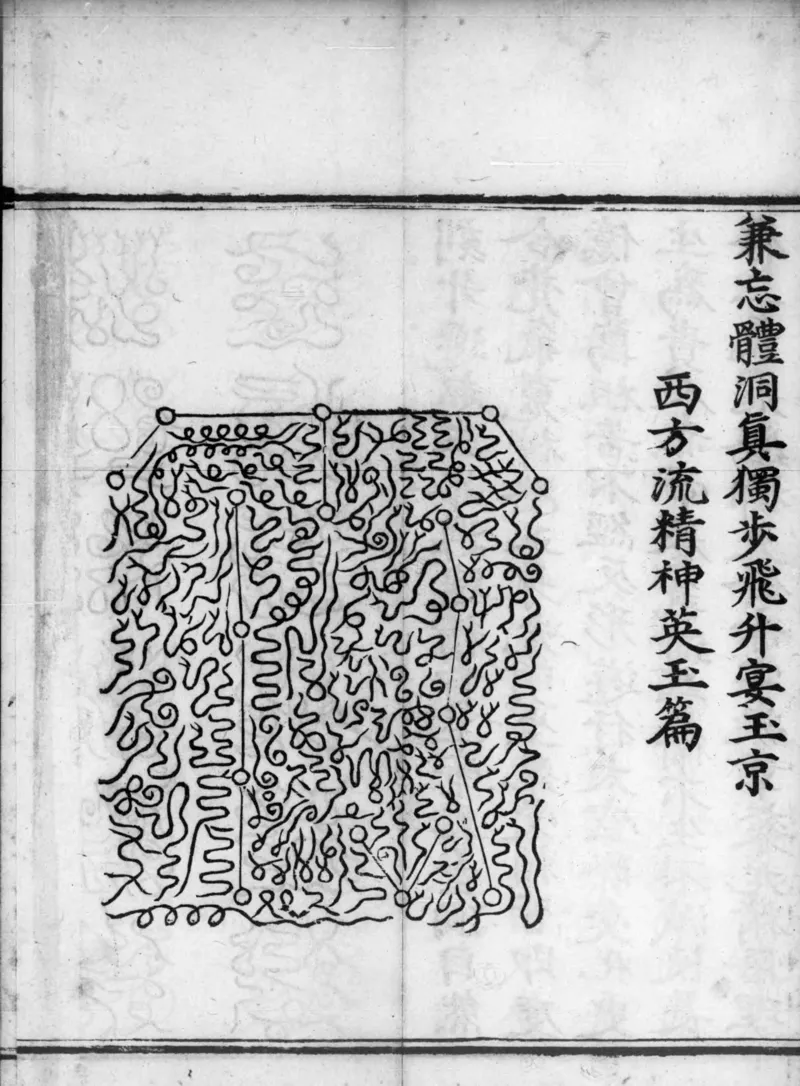 兼忘體洞真獨步飛升宴玉京
西方流精神英玉篇